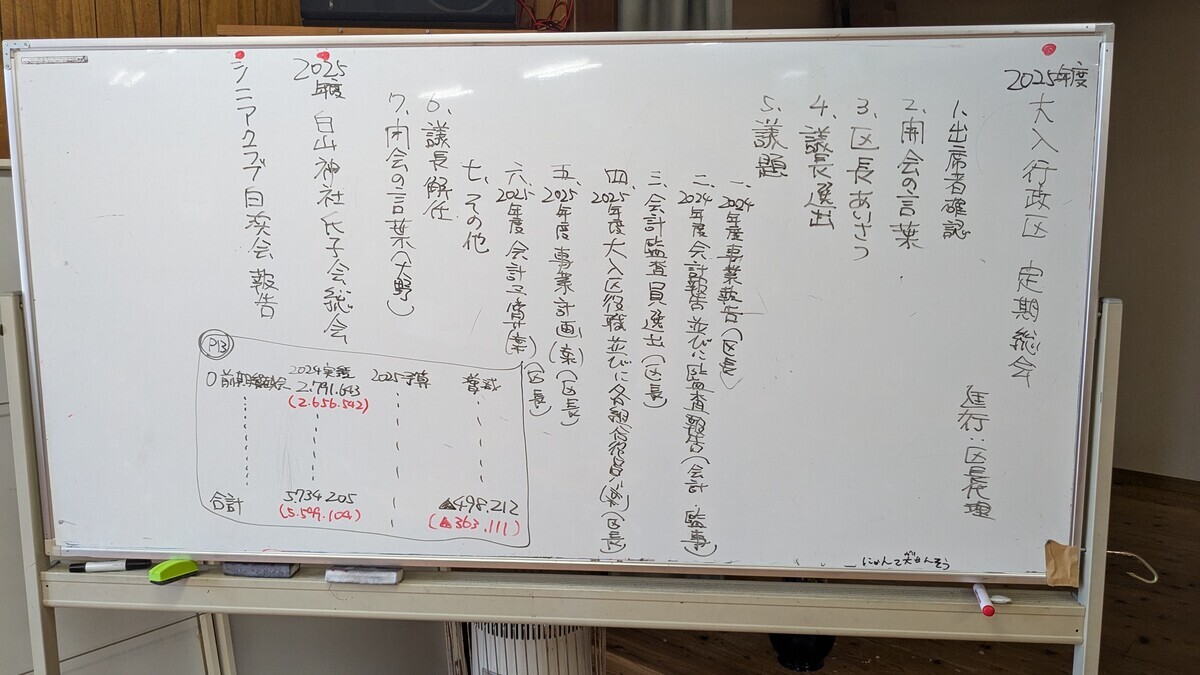 2025年度
大入行政区 定期総会
進行：区長代理
1、出席者確認
2、開会の言葉
3、区長あいさつ
4、議長選出
5、議題
一、2024年度事業報告(区長)
二、2024年度会計報告並びに監査報告(会計 監事)
三、会計監査員選出(区長)
四、2025年度大入区役職並びに各組合役員(案)(区長)
五、2025年度事業計画(案)(区長)
六、2025年度会計予算(案)(区長)
七、その他
6、議長解任
7、閉会の言葉(大野)
2025年度 白山神社氏子会総会
シニアクラブ白浜会報告
P13
2024実績 2025予算 増減
0前期繰越金 2.791.643
(2.656.542)
合計 5734205 ▲498.212
(5.599.104) (▲363.111)